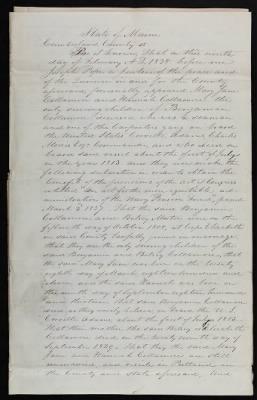 State of Maine
Cumberland County ss
Be it known, that on this ninth
day of February A.D. 1838 before me
Joseph Pope a Justice of the peace and
of the quorum in and for the County
aforesaid, personally appeared Mary Jane
Cottamore and Hannah Cottamore the
only surviving children of Benjamin
Cottamore deceased who was a seaman
and one of the Carpenters gang on board
the United States Corvette Adams Charles
Morris Esqr Commander, and who died on
board same vessel about the first of July
in the year 1813 who they make the
following declaration in order to obtain the
benefit of the provisions of the act of Congress
entitled "An act for the more equitable ad-
ministration of the Navy Pension fund," passed
March 3, 1837. That the said Benjamin
Cottamore and Betsey
fifteenth day of October 1808, at Cape Elizabeth
in said County lawfully joined in marriage
that they are the only surviving children of the
said Benjamin and Betsey Cottamore, that
the said Mary Jane was born on the twenty
eighth day of eighteen hundred and
eleven and the said Hannah was born on
the day of September eighteen hundred
and thirteen. That said Benjamin Cottamore
died as they verily believe on board the U.S.
Corvette Adams about the first of July 1813.
That their mother the said Betsey
Cottamore died on the twenty ninth day of
September 1829. That they the said Mary
Jane and Hannah Cottamore are still
unmarried, and reside in Portland in
the County and state aforesaid. And